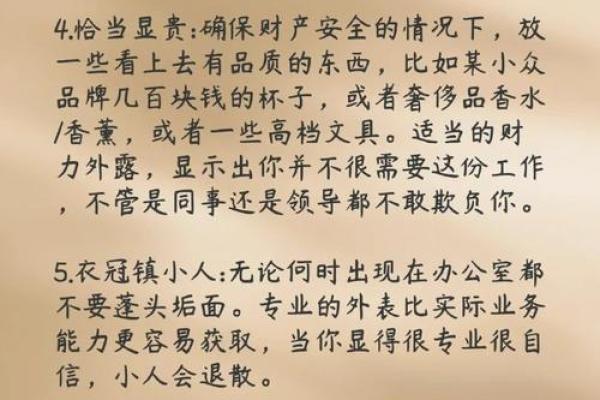 4.恰当显贵:确保财产安全的情况下，放
一些看上去有品质的东西，比如某小众
品牌几百块钱的杯子，或者奢侈品香水
/香薰，或者一些高档文具。适当的财
力外露，显示出你并不很需要这份工作
，不管是同事还是领导都不敢欺负你。
5.衣冠镇小人:无论何时出现在办公室都
不要蓬头垢面。专业的外表比实际业务
能力更容易获取，当你显得很专业很自
信，小人会退散。